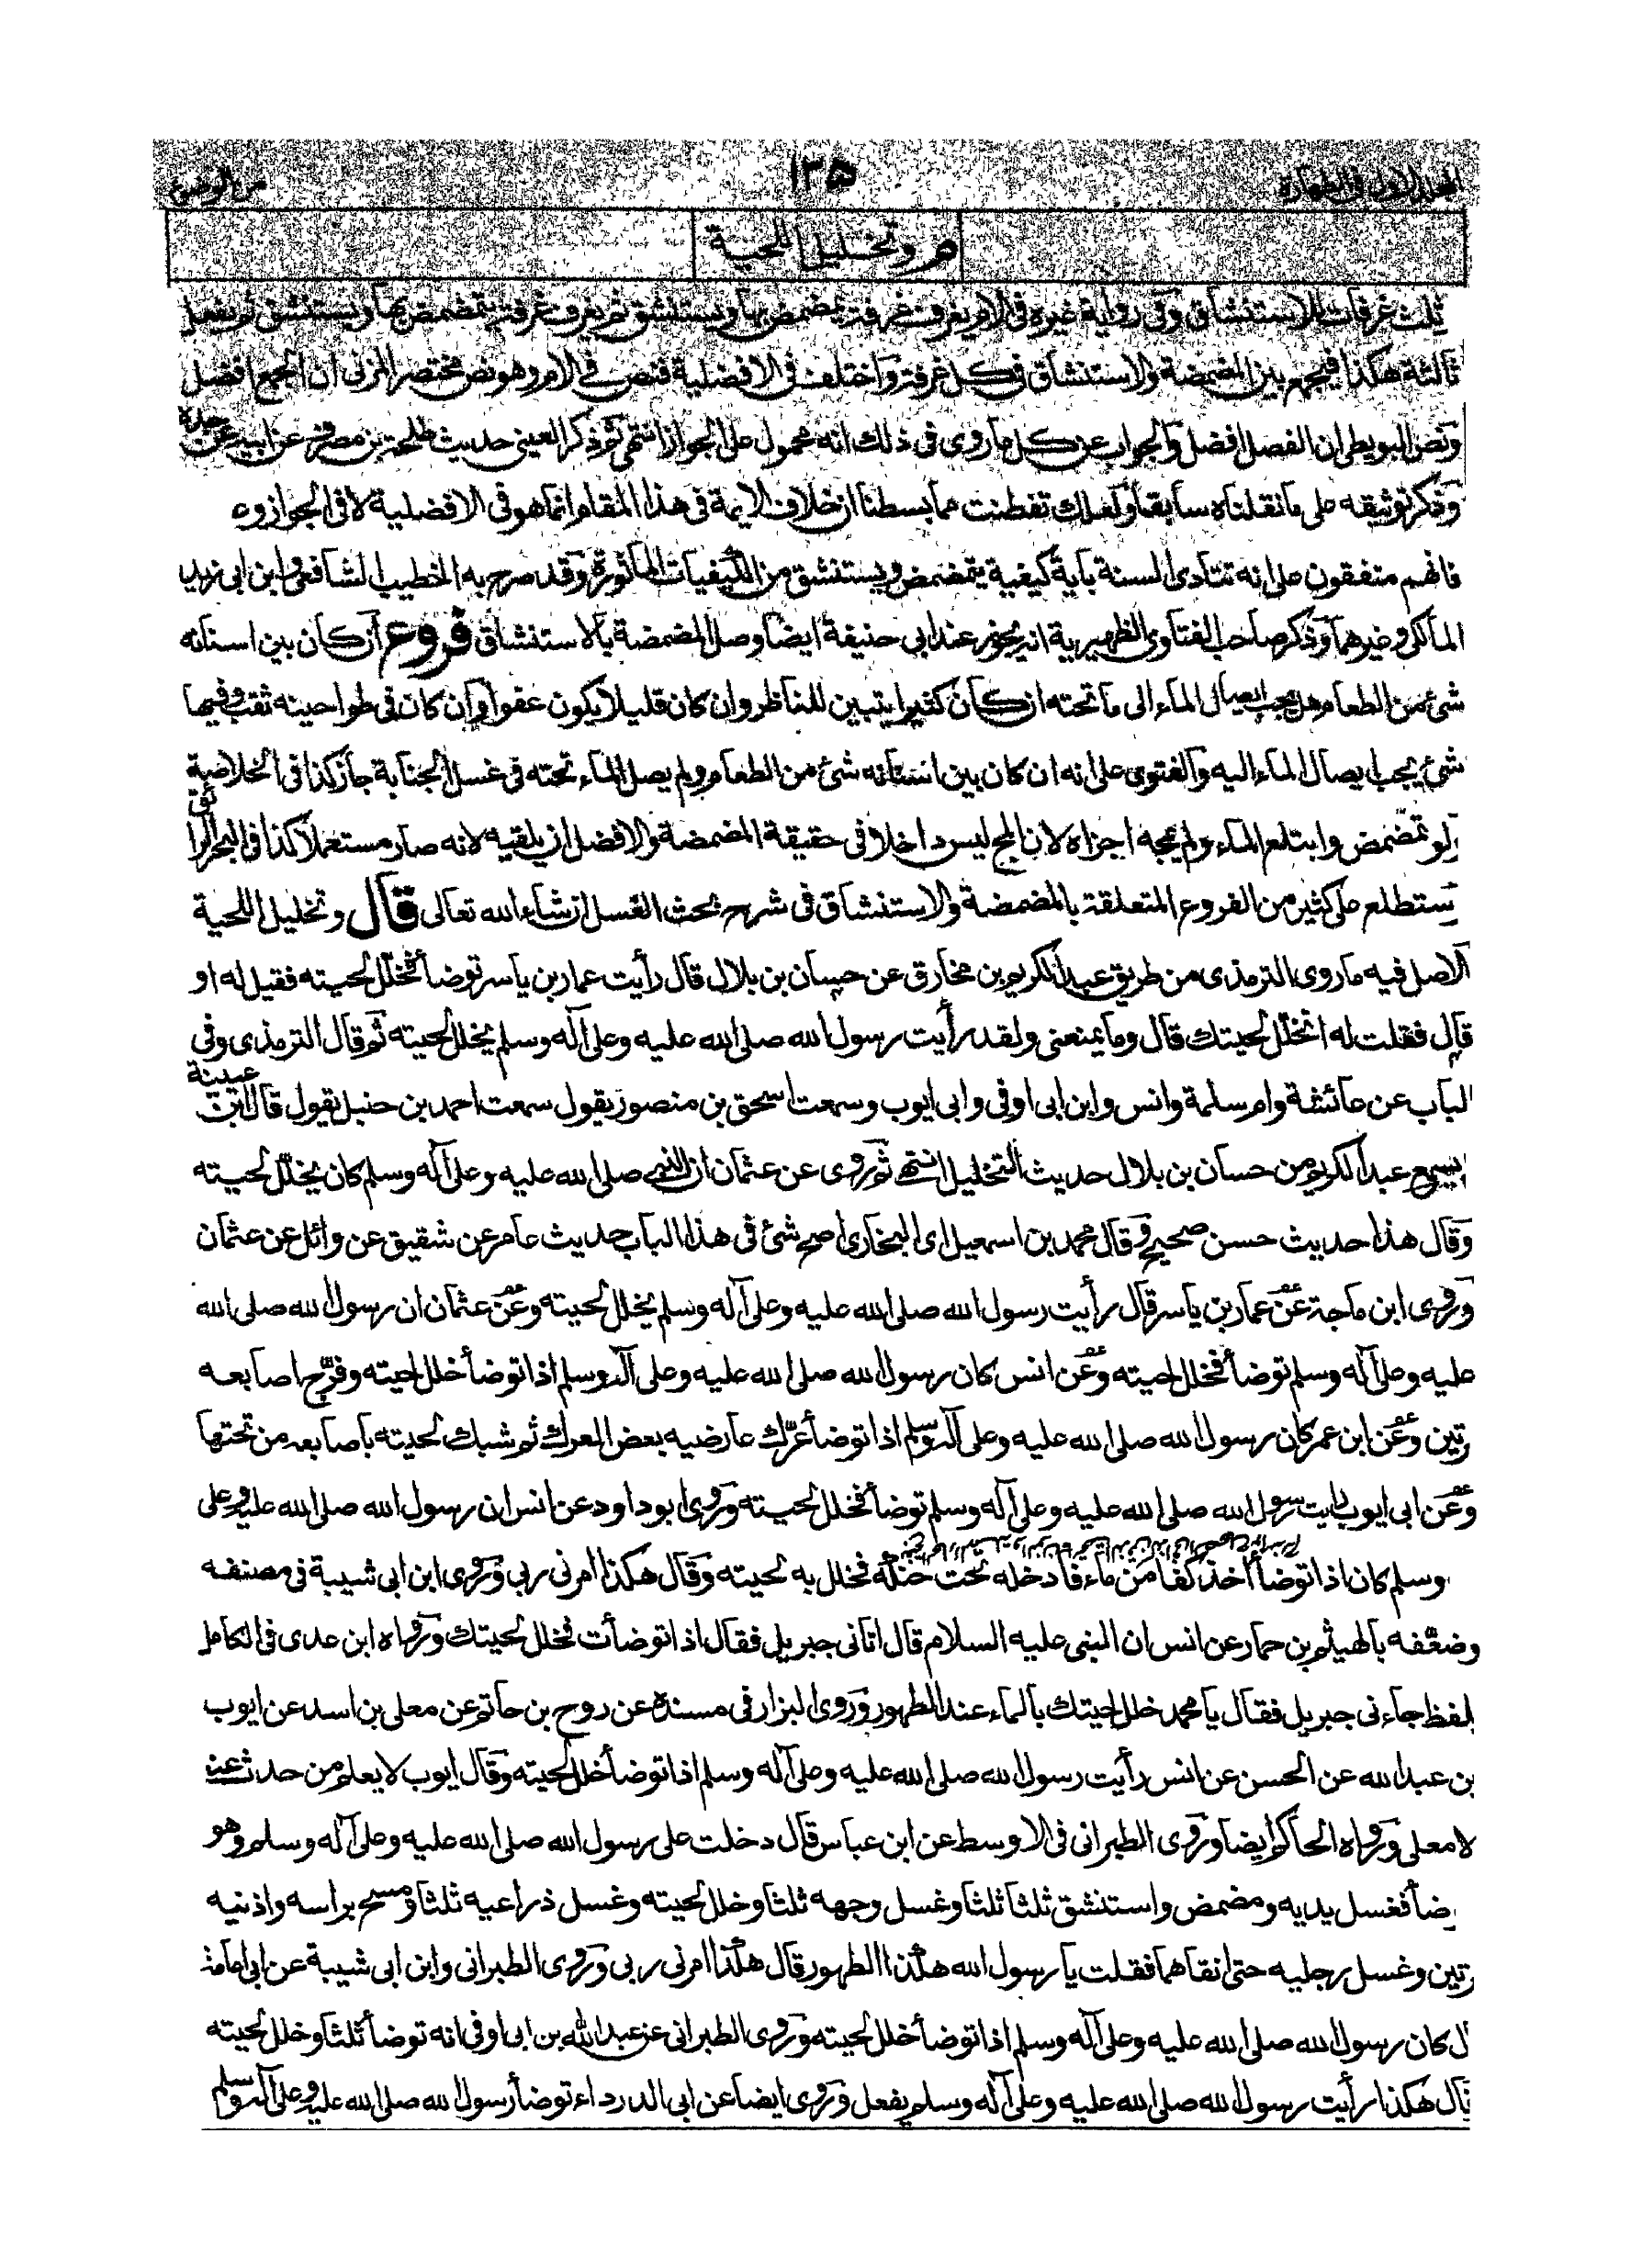 المجلد الاول فى الطهارة ١٣٥ سنن الوضوء
م وتخليل اللحية
ثلث غرفات للاستنشاق وفى رواية غيره فى الام يغرف غرفة يتمضمض بها ويستنشق ثم يغرف غرفة يتمضمض بها ويستنشق ثم يفعل
ثالثة هكذا فيجمع بين المضمضة والاستنشاق فى كل غرفة واختلف فى الافضلية فنص فى الام وهو نص مختصر المزنى ان الجمع افضل
ونص البويطى ان الفصل افضل والجواب عن كل ما روى فى ذلك انه محمول على الجواز انتهى ثم ذكر العينى حديث طلحة بن مصرف عن ابيه عن جده
وذكر توثيقه على ما نقلناه سابقا ولعلك تفطنت مما بسطنا ان خلاف الايمة فى هذا المقام انما هو فى الافضلية لا فى الجواز وه
فانهم متفقون على انه تتادى السنة باية كيفية يتمضمض ويستنشق من الكيفيات الماثورة وقد صرح به الخطيب الشافعى وابن ابى زيد
المالكى وغيرهما وذكر صاحب الفتاوى الظهيرية انه يجوز عند ابى حنيفة ايضا وصل المضمضة بالاستنشاق فروع ان كان بين اسنانه
شئ من الطعام هل يجب ايصال الماء الى ما تحته ان كان كثيرا يتبين للناظر وان كان قليلا يكون عفوا وان كان فى طواحينه ثقب وفيها
شئ يجب ايصال الماء اليه والفتوى على انه ان كان بين اسنانه شئ من الطعام ولم يصل الماء تحته فى غسل الجنابة جاز كذا فى الخلاصة
لو تمضمض وابتلع الماء ولم يمجه اجزاه لان المج ليس داخلا فى حقيقة المضمضة والافضل ان يلقيه لانه صار مستعملا كذا فى البحر الرائق
ستطلع على كثير من الفروع المتعلقة بالمضمضة والاستنشاق فى شرح بحث الغسل ان شاء الله تعالى قال وتخليل اللحية
الاصل فيه ما روى الترمذى من طريق عبد الكريم بن مخارق عن حسان بن بلال قال رأيت عمار بن ياسر توضأ فخلّل لحيته فقيل له او
قال فقلت له اتخلّل لحيتك قال وما يمنعنى ولقد رأيت رسول الله صلى الله عليه وعلى آله وسلم يخلل لحيته ثم قال الترمذى وفى
الباب عن عائشة وام سلمة وانس وابن ابى اوفى وابى ايوب وسمعت اسحق بن منصور يقول سمعت احمد بن حنبل يقول قال ابن عيينة
يسمع عبد الكريم من حسان بن بلال حديث التخليل انتهى ثم روى عن عثمان ان النبى صلى الله عليه وعلى آله وسلم كان يخلّل لحيته
وقال هذا حديث حسن صحيح وقال محمد بن اسمعيل اى البخارى اصح شئ فى هذا الباب حديث عامر عن شقيق عن وائل عن عثمان
وروى ابن ماجة عن عمار بن ياسر قال رأيت رسول الله صلى الله عليه وعلى آله وسلم يخلل لحيته وعن عثمان ان رسول الله صلى الله
عليه وعلى آله وسلم توضأ فخلل لحيته وعن انس كان رسول الله صلى الله عليه وعلى آله وسلم اذا توضأ خلل لحيته وفرّج اصابعه
رتين وعن ابن عمر كان رسول الله صلى الله عليه وعلى آله وسلم اذا توضأ عرّك عارضيه بعض العرك ثم شبك لحيته باصابعه من تحتها
وعن ابى ايوب رايت رسول الله صلى الله عليه وعلى آله وسلم توضأ فخلل لحيته وروى ابو داود عن انس ان رسول الله صلى الله عليه وعلى
وسلم كان اذا توضأ أخذ كفا من ماء فادخله تحت حنكه فخلل به لحيته وقال هكذا امرنى ربى وروى ابن ابى شيبة فى مصنفه
وضعّفه بالهيثم بن حماد عن انس ان النبى عليه السلام قال اتانى جبريل فقال اذا توضأت فخلل لحيتك ورواه ابن عدى فى الكامل
بلفظ جاءنى جبريل فقال يا محمد خلل لحيتك بالماء عند الطهور وروى البزار فى مسنده عن روح بن حاتم عن معلى بن اسد عن ايوب
بن عبد الله عن الحسن عن انس رأيت رسول الله صلى الله عليه وعلى آله وسلم اذا توضأ خلل لحيته وقال ايوب لا يعلم من حدث عنه
لا معلى ورواه الحاكم ايضا وروى الطبرانى فى الاوسط عن ابن عباس قال دخلت على رسول الله صلى الله عليه وعلى آله وسلم وهو
ضأ فغسل يديه ومضمض واستنشق ثلثا ثلثا وغسل وجهه ثلثا وخلل لحيته وغسل ذراعيه ثلثا ومسح براسه واذنيه
رتين وغسل رجليه حتى انقاهما فقلت يا رسول الله هكذا الطهور قال هكذا امرنى ربى وروى الطبرانى وابن ابى شيبة عن ابى امامة
ل كان رسول الله صلى الله عليه وعلى آله وسلم اذا توضأ خلل لحيته وروى الطبرانى عن عبد الله بن ابى اوفى انه توضأ ثلثا وخلل لحيته
قال هكذا رأيت رسول الله صلى الله عليه وعلى آله وسلم يفعل وروى ايضا عن ابى الدرداء توضأ رسول الله صلى الله عليه وعلى آله وسلم